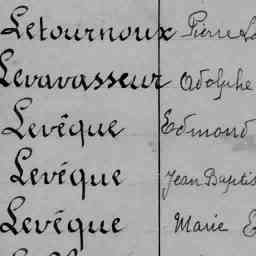 Letournoux Pierre
Levavasseur Adolphe
Levêque Edmond
Levêque Jean Baptis
Levêque Marie